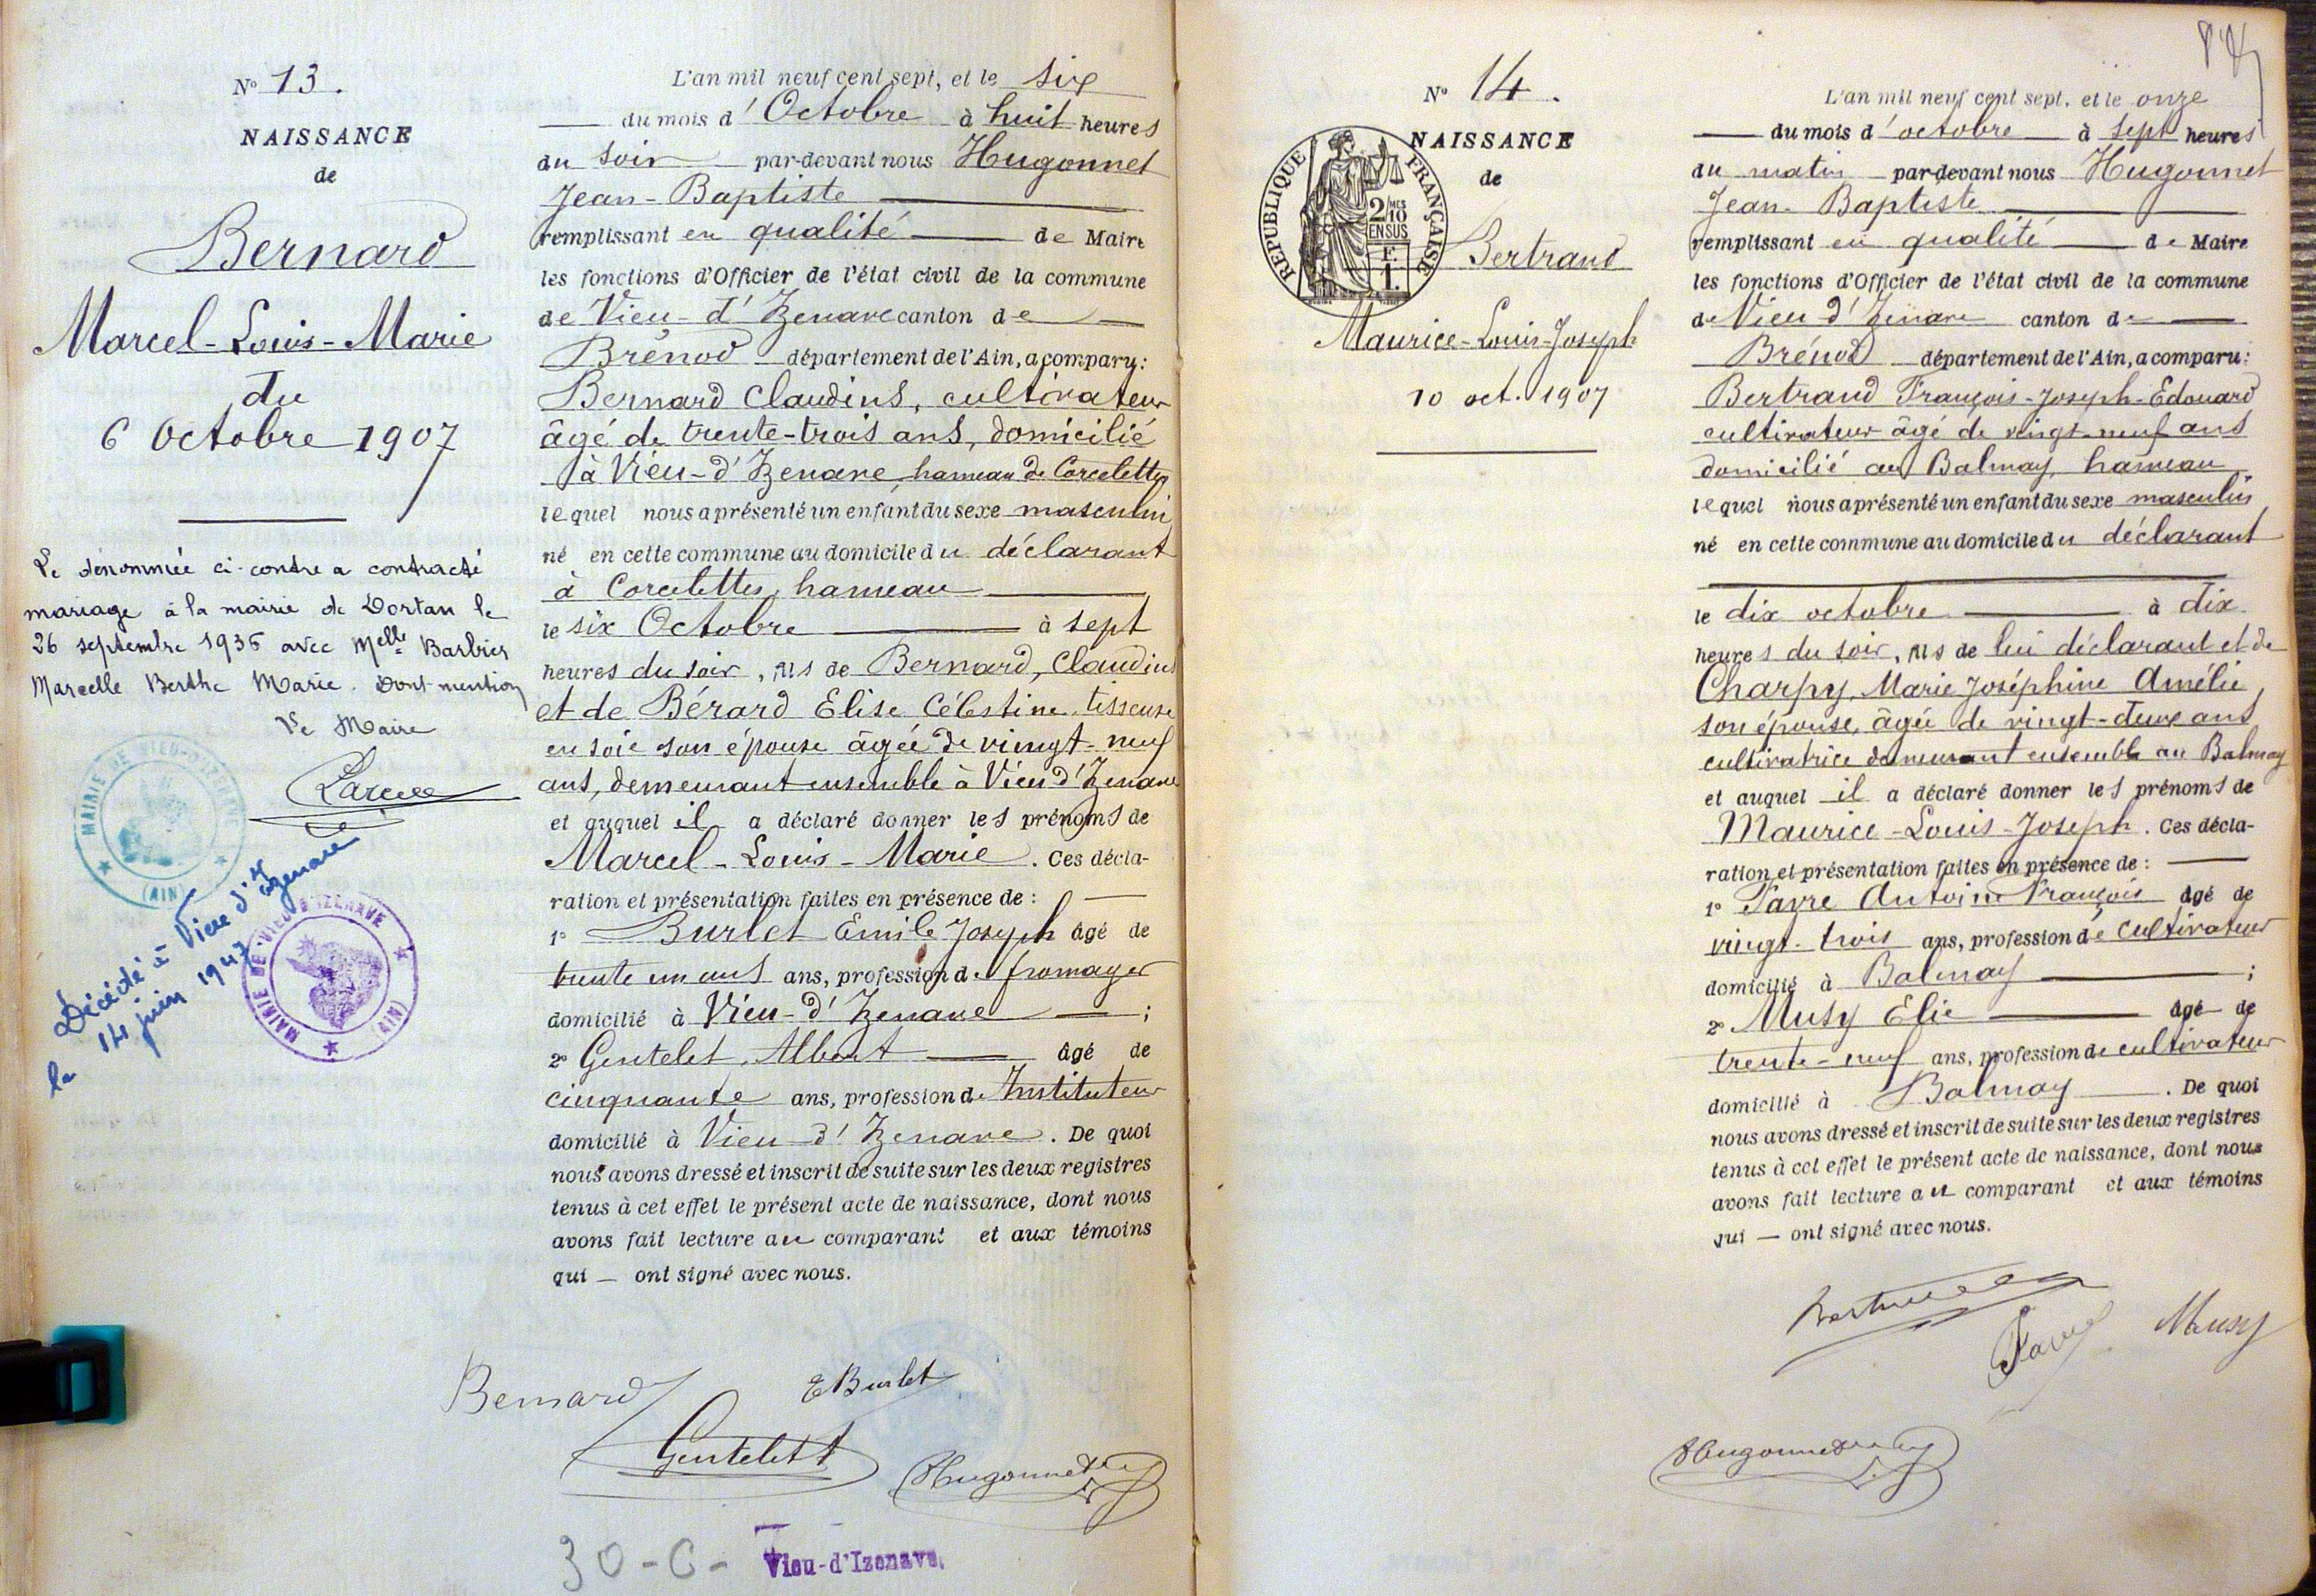 N° 13.
NAISSANCE
de
Bernard
Marcel-Louis-Marie
du
6 Octobre 1907
Le dénommée ci-contre a contracté
mariage à la mairie de Dortan le
26 septembre 1936 avec Melle Barbier
Marcelle Berthe Marie. Dont mention
Le Maire
MAIRIE DE VIEU-D'IZENAVE
(AIN)
Décédé à Vieu d'Izenave
le 14 juin 1947
MAIRIE DE VIEU-D'IZENAVE
(AIN)
L'an mil neuf cent sept, et le six
du mois d'Octobre à huit heures
du soir par-devant nous Hugonnet
Jean-Baptiste
remplissant en qualité de Maire
les fonctions d'Officier de l'état civil de la commune
de Vieu-d'Izenave canton de
Brénod département de l'Ain, a comparu:
Bernard Claudius, cultivateur
âgé de trente-trois ans, domicilié
à Vieu-d'Izenave, hameau de Corcelettes
lequel nous a présenté un enfant du sexe masculin
né en cette commune au domicile du déclarant
à Corcelettes, hameau
le six Octobre à sept
heures du soir, fils de Bernard, Claudius
et de Bérard Elise Célestine, tisseuse
en soie son épouse âgée de vingt-neuf
ans, demeurant ensemble à Vieu d'Izenave
et auquel il a déclaré donner les prénoms de
Marcel-Louis-Marie. Ces décla-
ration et présentation faites en présence de:
1° Burlet Emile Joseph âgé de
trente un ans ans, profession de fromager
domicilié à Vieu-d'Izenave;
2° Gentelet, Albert âgé de
cinquante ans, profession d. Instituteur
domicilié à Vieu-d'Izenave. De quoi
nous avons dressé et inscrit de suite sur les deux registres
tenus à cet effet le présent acte de naissance, dont nous
avons fait lecture au comparant et aux témoins
qui — ont signé avec nous.
Bernard
E Burlet
Gentelet A
Hugonnet
30-C-
Vieu-d'Izenave.
N° 14.
NAISSANCE
de
REPUBLIQUE FRANÇAISE
2/10 MES
EN SUS
F.
1.
Bertrand
Maurice-Louis-Joseph
10 oct. 1907
L'an mil neuf cent sept, et le onze
du mois d'octobre à sept heures
du matin par-devant nous Hugonnet
Jean-Baptiste
remplissant en qualité de Maire
les fonctions d'Officier de l'état civil de la commune
de Vieu d'Izenave canton de
Brénod département de l'Ain, a comparu:
Bertrand François-Joseph-Edouard
cultivateur âgé de vingt-neuf ans
domicilié au Balmay, hameau
lequel nous a présenté un enfant du sexe masculin
né en cette commune au domicile du déclarant
le dix octobre à dix
heures du soir, fils de lui déclarant et de
Charpy, Marie Joséphine Amélie,
son épouse, âgée de vingt-deux ans
cultivatrice demeurant ensemble au Balmay
et auquel il a déclaré donner les prénoms de
Maurice-Louis-Joseph. Ces décla-
ration et présentation faites en présence de:
1° Favre Antoine François âgé de
vingt-trois ans, profession de cultivateur
domicilié à Balmay;
2° Musy Elie âgé de
trente-neuf ans, profession de cultivateur
domicilié à Balmay. De quoi
nous avons dressé et inscrit de suite sur les deux registres
tenus à cet effet le présent acte de naissance, dont nous
avons fait lecture au comparant et aux témoins
qui — ont signé avec nous.
Bertrand
Favre
Musy
Hugonnet